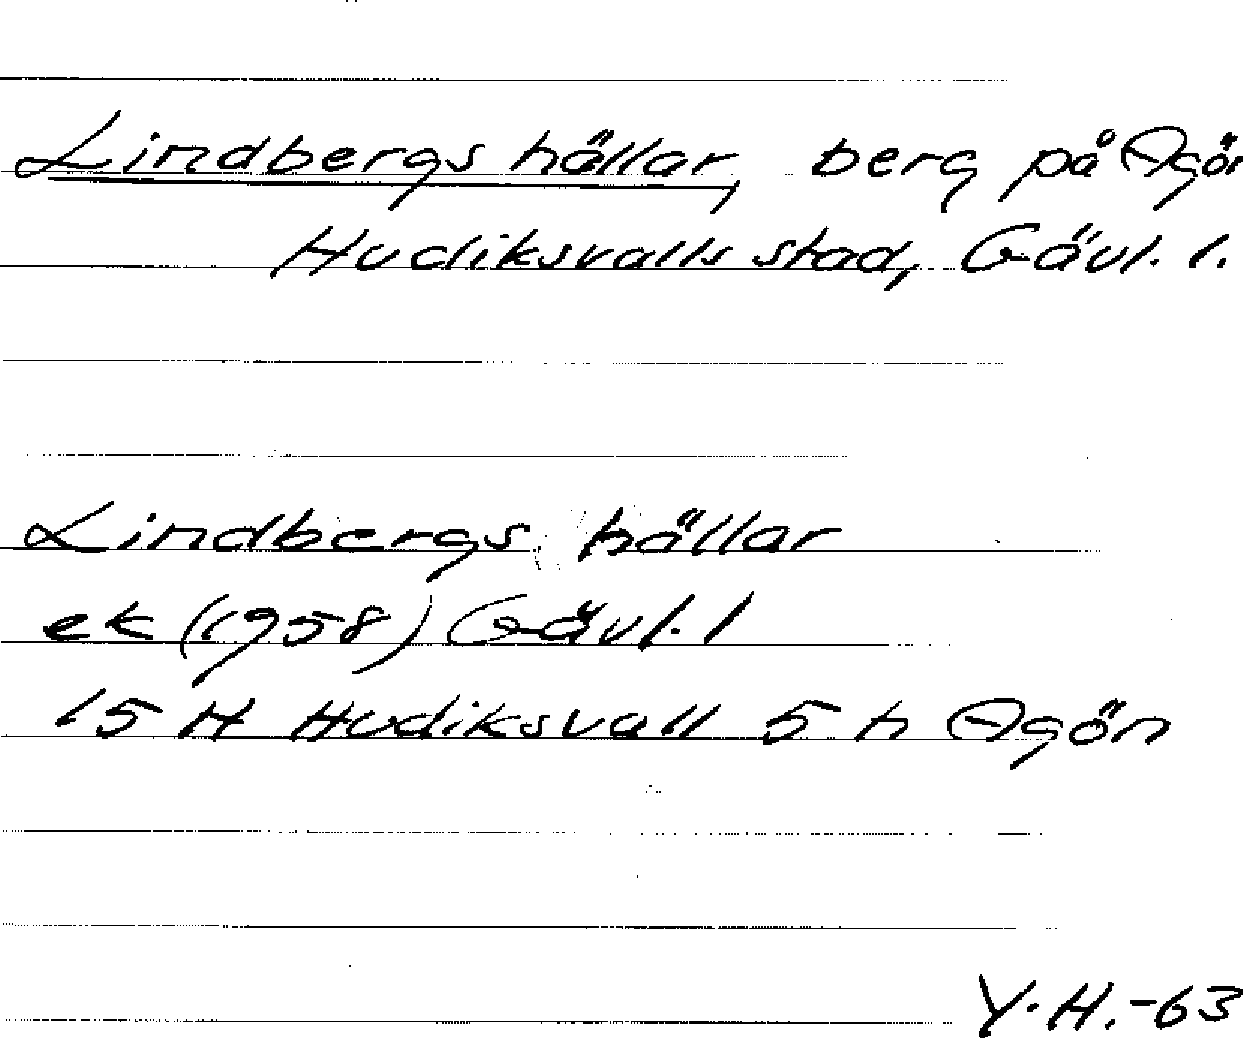 Lindbergs hällar, berg på Agön
Hudiksvalls stad, Gävl. l.
Lindbergs hällar
ek (1958) Gävl. l
15 H Hudiksvall 5 h Agön
Y.H.-63